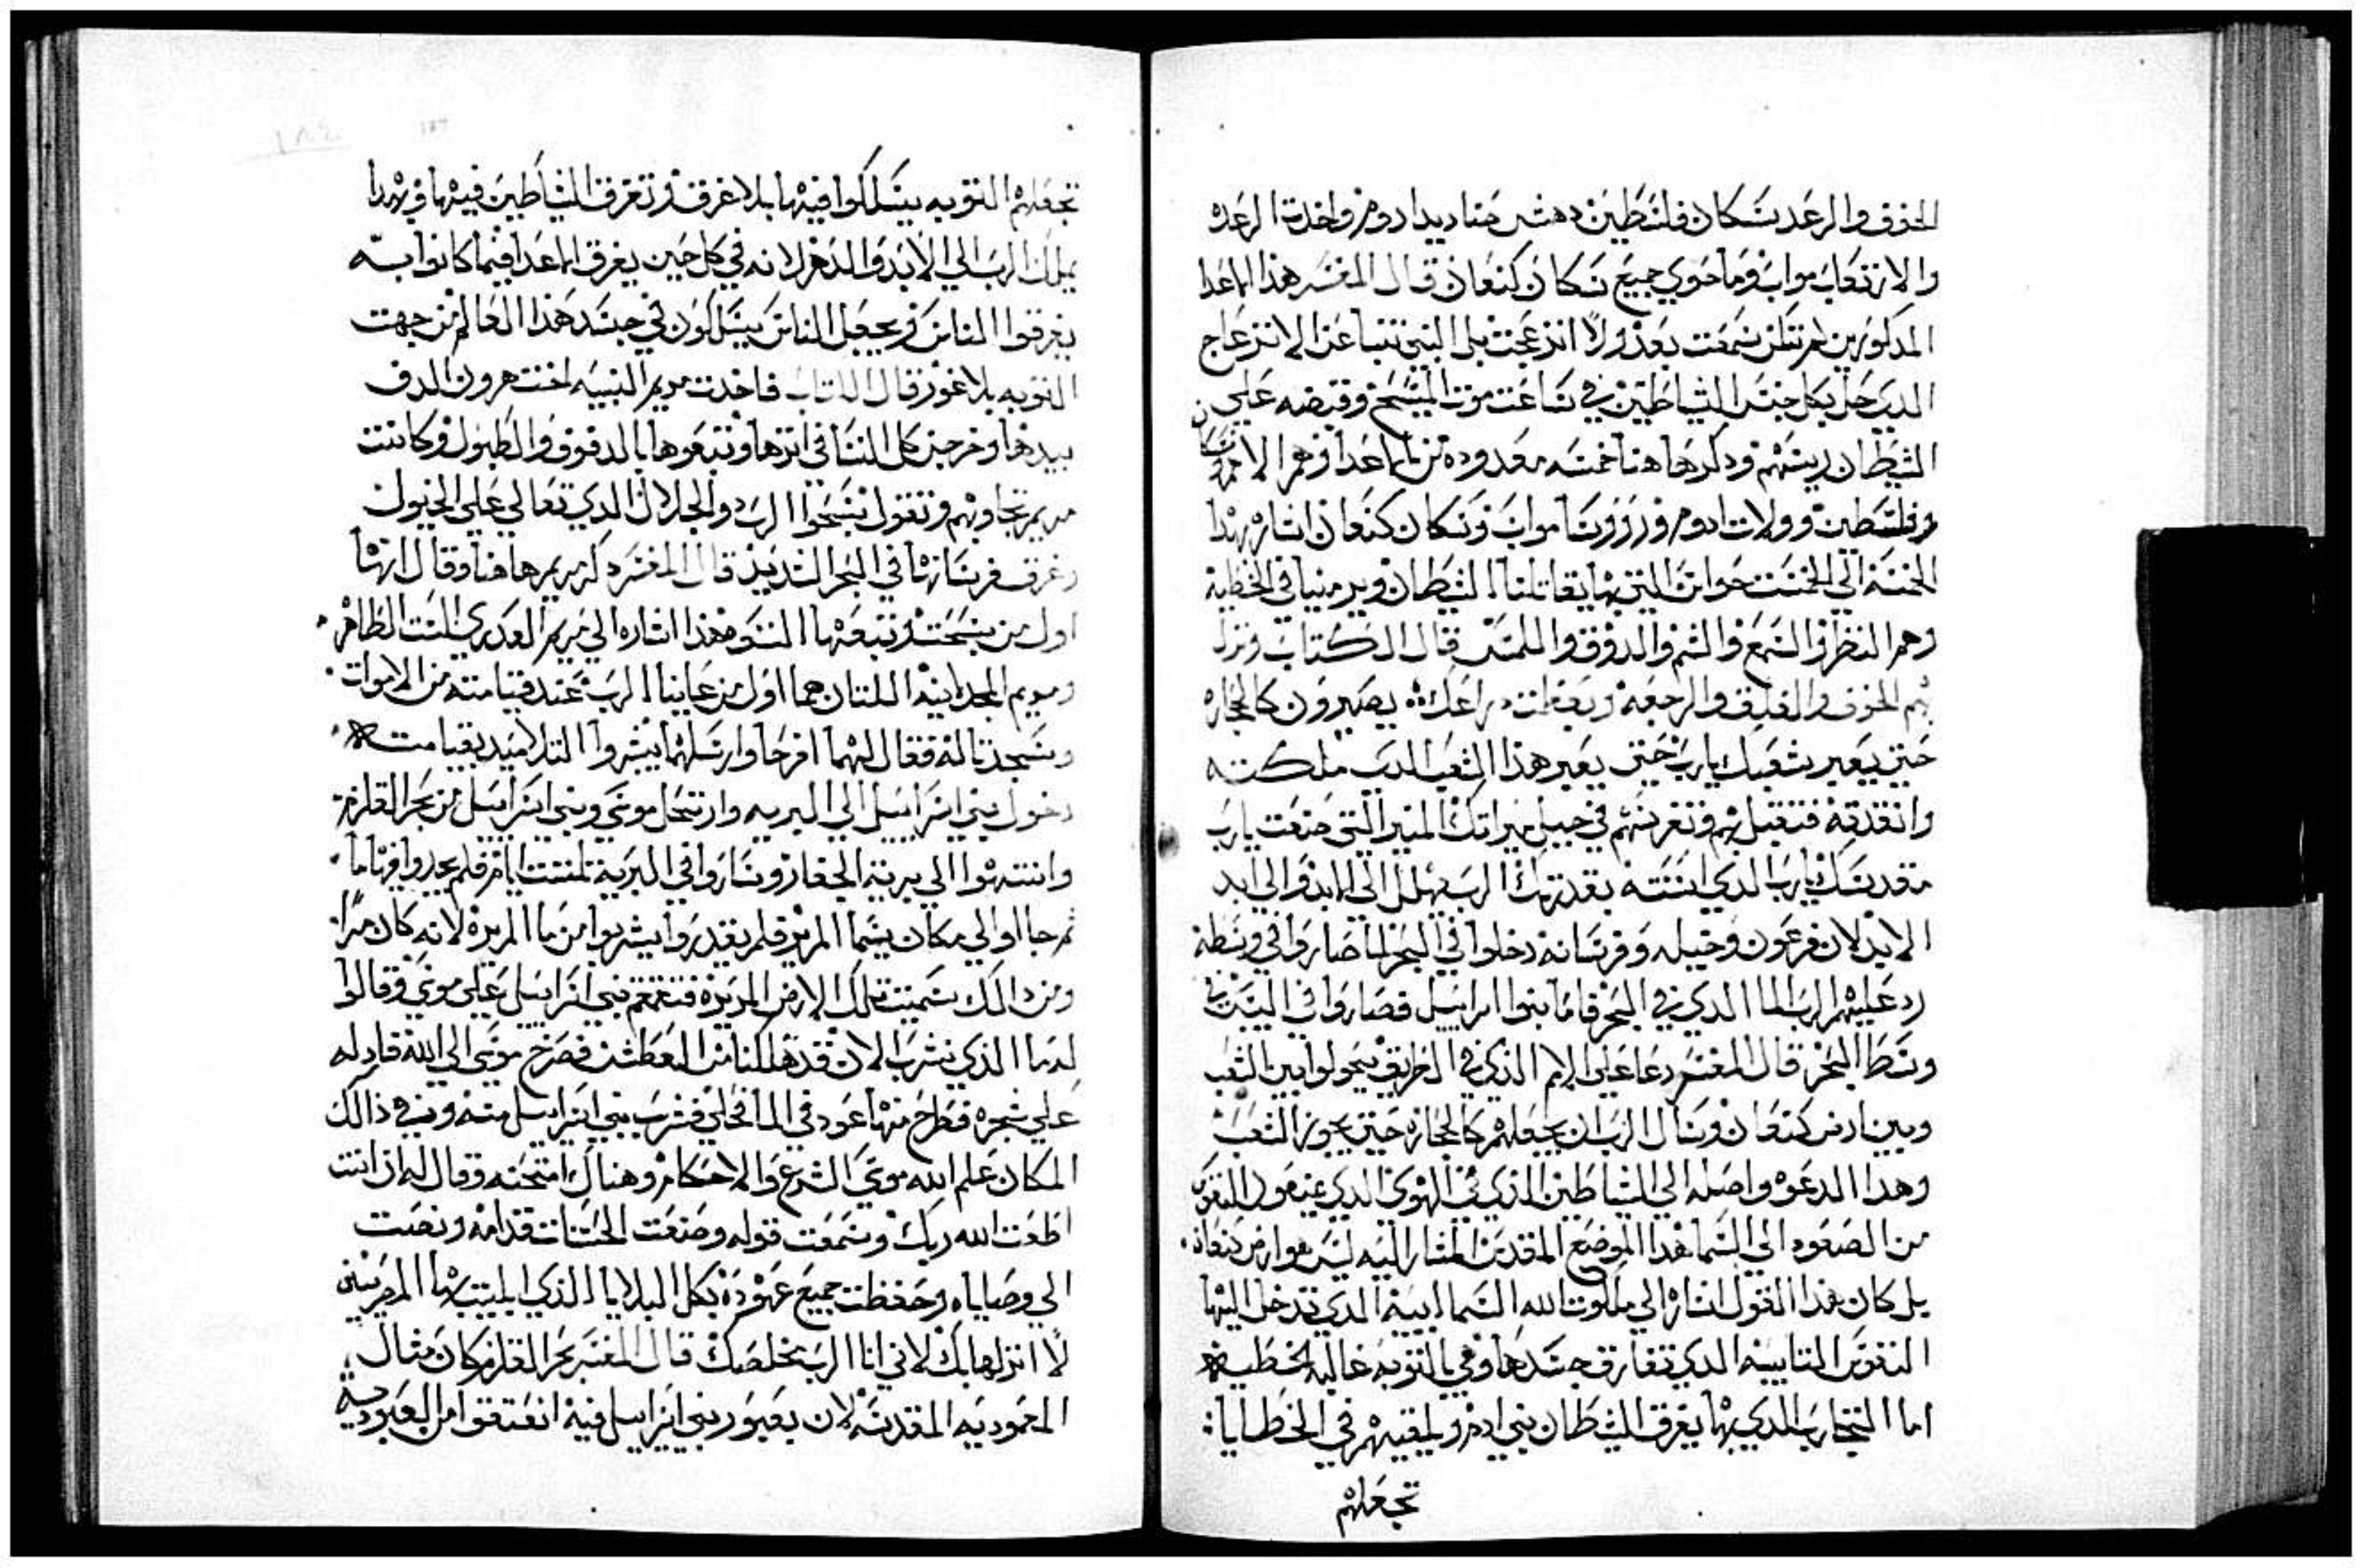 الخوف والرعد سكان فلسطين دهش صناديد ادوم واخدت الرعده
والارتعاب مواب وماحوي جميع سكان كنعان قال المفسر هذا الاعدا
المدكورين لم تكن سمعت بعد ولا انزعجت بلي النبي تنبا عن الانزعاج
الدي حل بكل جنس الشياطين في ساعت موت المسيح وقبضه علي
الشيطان ريسهم ودكرها هنا خمسه معدوده من الاعدا وهم الامم
وفلسطين وولات ادوم وروسا مواب وسكان كنعان اشاره بهدا
الخمسة الي الخمست حواس التي بها يقاتلنا الشيطان ويرمينا في الخطية
وهم النظر والسمع والشم والدوق واللمس قال الكتاب وتزل
بهم الخوف والقلق والرجفة وبعظمت دراعك يصيرون كالحجاره
حتي يعبر شعبك يارب حتي يعبر هذا الشعب الدي ملكته
وانقدته فتقبل بهم وتغرسهم في جبل ميراتك المنير التي صنعت يارب
مقدسك يارب الدي اسسته بقدرتك الرب يملك الي الابد والي ابد
الابد لان فرعون وخيله وفرسانه دخلوا في البحر لما صاروا في وسطه
رد عليهم الرب الما الدي في البحر فاما بنوا اسراييل فصاروا في اليبس في
وسط البحر قال المفسر دعا علي الامم الذي في الطريق يحولوا بين الشعب
وبين ارض كنعان وسال الرب ان يجعلهم كالحجاره حتي يجوز الشعب
وهدا الدعوه واصله الي الشياطين الذي في الهوي الدي يمنعون النفوس
من الصعود الي السما هدا الموضع المقدس المشار اليه ليس هو ارض كنعان
بل كان هدا القول اشاره الي ملكوت الله السماايية الدي تدخل اليها
النفوس التايبيه الدي تفارق جسدها وهي بالتوبه غالبه الخطيه
اما التجارب الدي بها يغرق الشيطان بني ادم ويلقيهم في الخطايا
تجعلهم
تجعلهم التوبه يسلكوا فيها بلا غرق وتغرق الشياطين فيها وبهدا
يملك الرب الي الابد والدهر لانه في كل حين يغرق الاعدا فيما كانوا به
يغرقوا الناس ويجعل الناس يسلكون في جسد هذا العالم من جهت
التوبه بلا غور قال الكتاب فاخدت مريم النبيه اخت هرون الدف
بيدها وخرجن كل النسا في اترها وتبعوها بالدفوف والطبول وكانت
مريم تجاوبهم وتقول نسبحوا الرب دوالجلال الدي تعالي علي الخيول
وغرق فرسانها في البحر الشديد قال المفسر دكر مريم هاهنا وقال انها
اول من سبحت وتبعها النسوه هذا اشاره الي مريم العدري الست الطاهر
ومريم المجدلنيه اللتان هما اول من عاينا الرب عند قيامته من الاموات
وسجدتا له فقال لهما افرحا وارسلهما يبشروا التلاميد بقيامته
دخول بني اسراييل الي البريه وارتحل موسي وبني اسراييل من بحر القلزم
وانتهوا الي برية الجفار وساروا في البرية تلتت ايام فلم يجدوا فيها ما
ثم جااو الي مكان يسما المرير فلم يقدروا يشربوا من ما المريره لانه كان مرا
ومن دالك سميت تلك الارض المريره فتقمقم بني اسراييل علي موسي وقالوا
لدما الذي نشرب الان قد هلك الناس من العطش فصرخ موسي الي الله فادله
علي شجره فطرح منها عود في الما فحلي فشرب بني اسراييل منه وفي ذالك
المكان علم الله موسي الشرع والاحكام وهناك امتحنه وقال له ان انت
اطعت الله ربك وسمعت قوله وصنعت الحسنات قدامه ونصت
الي وصاياه وحفظت جميع عهوده بكل البلايا الذي ابليت بها المصريين
لا انزلها بك لاني انا الرب مخلصك قال المفسر بحر القلزم كان مثال
المعموديه المقدسه لان بعبور بني اسراييل فيه انعتقوا من العبوديه